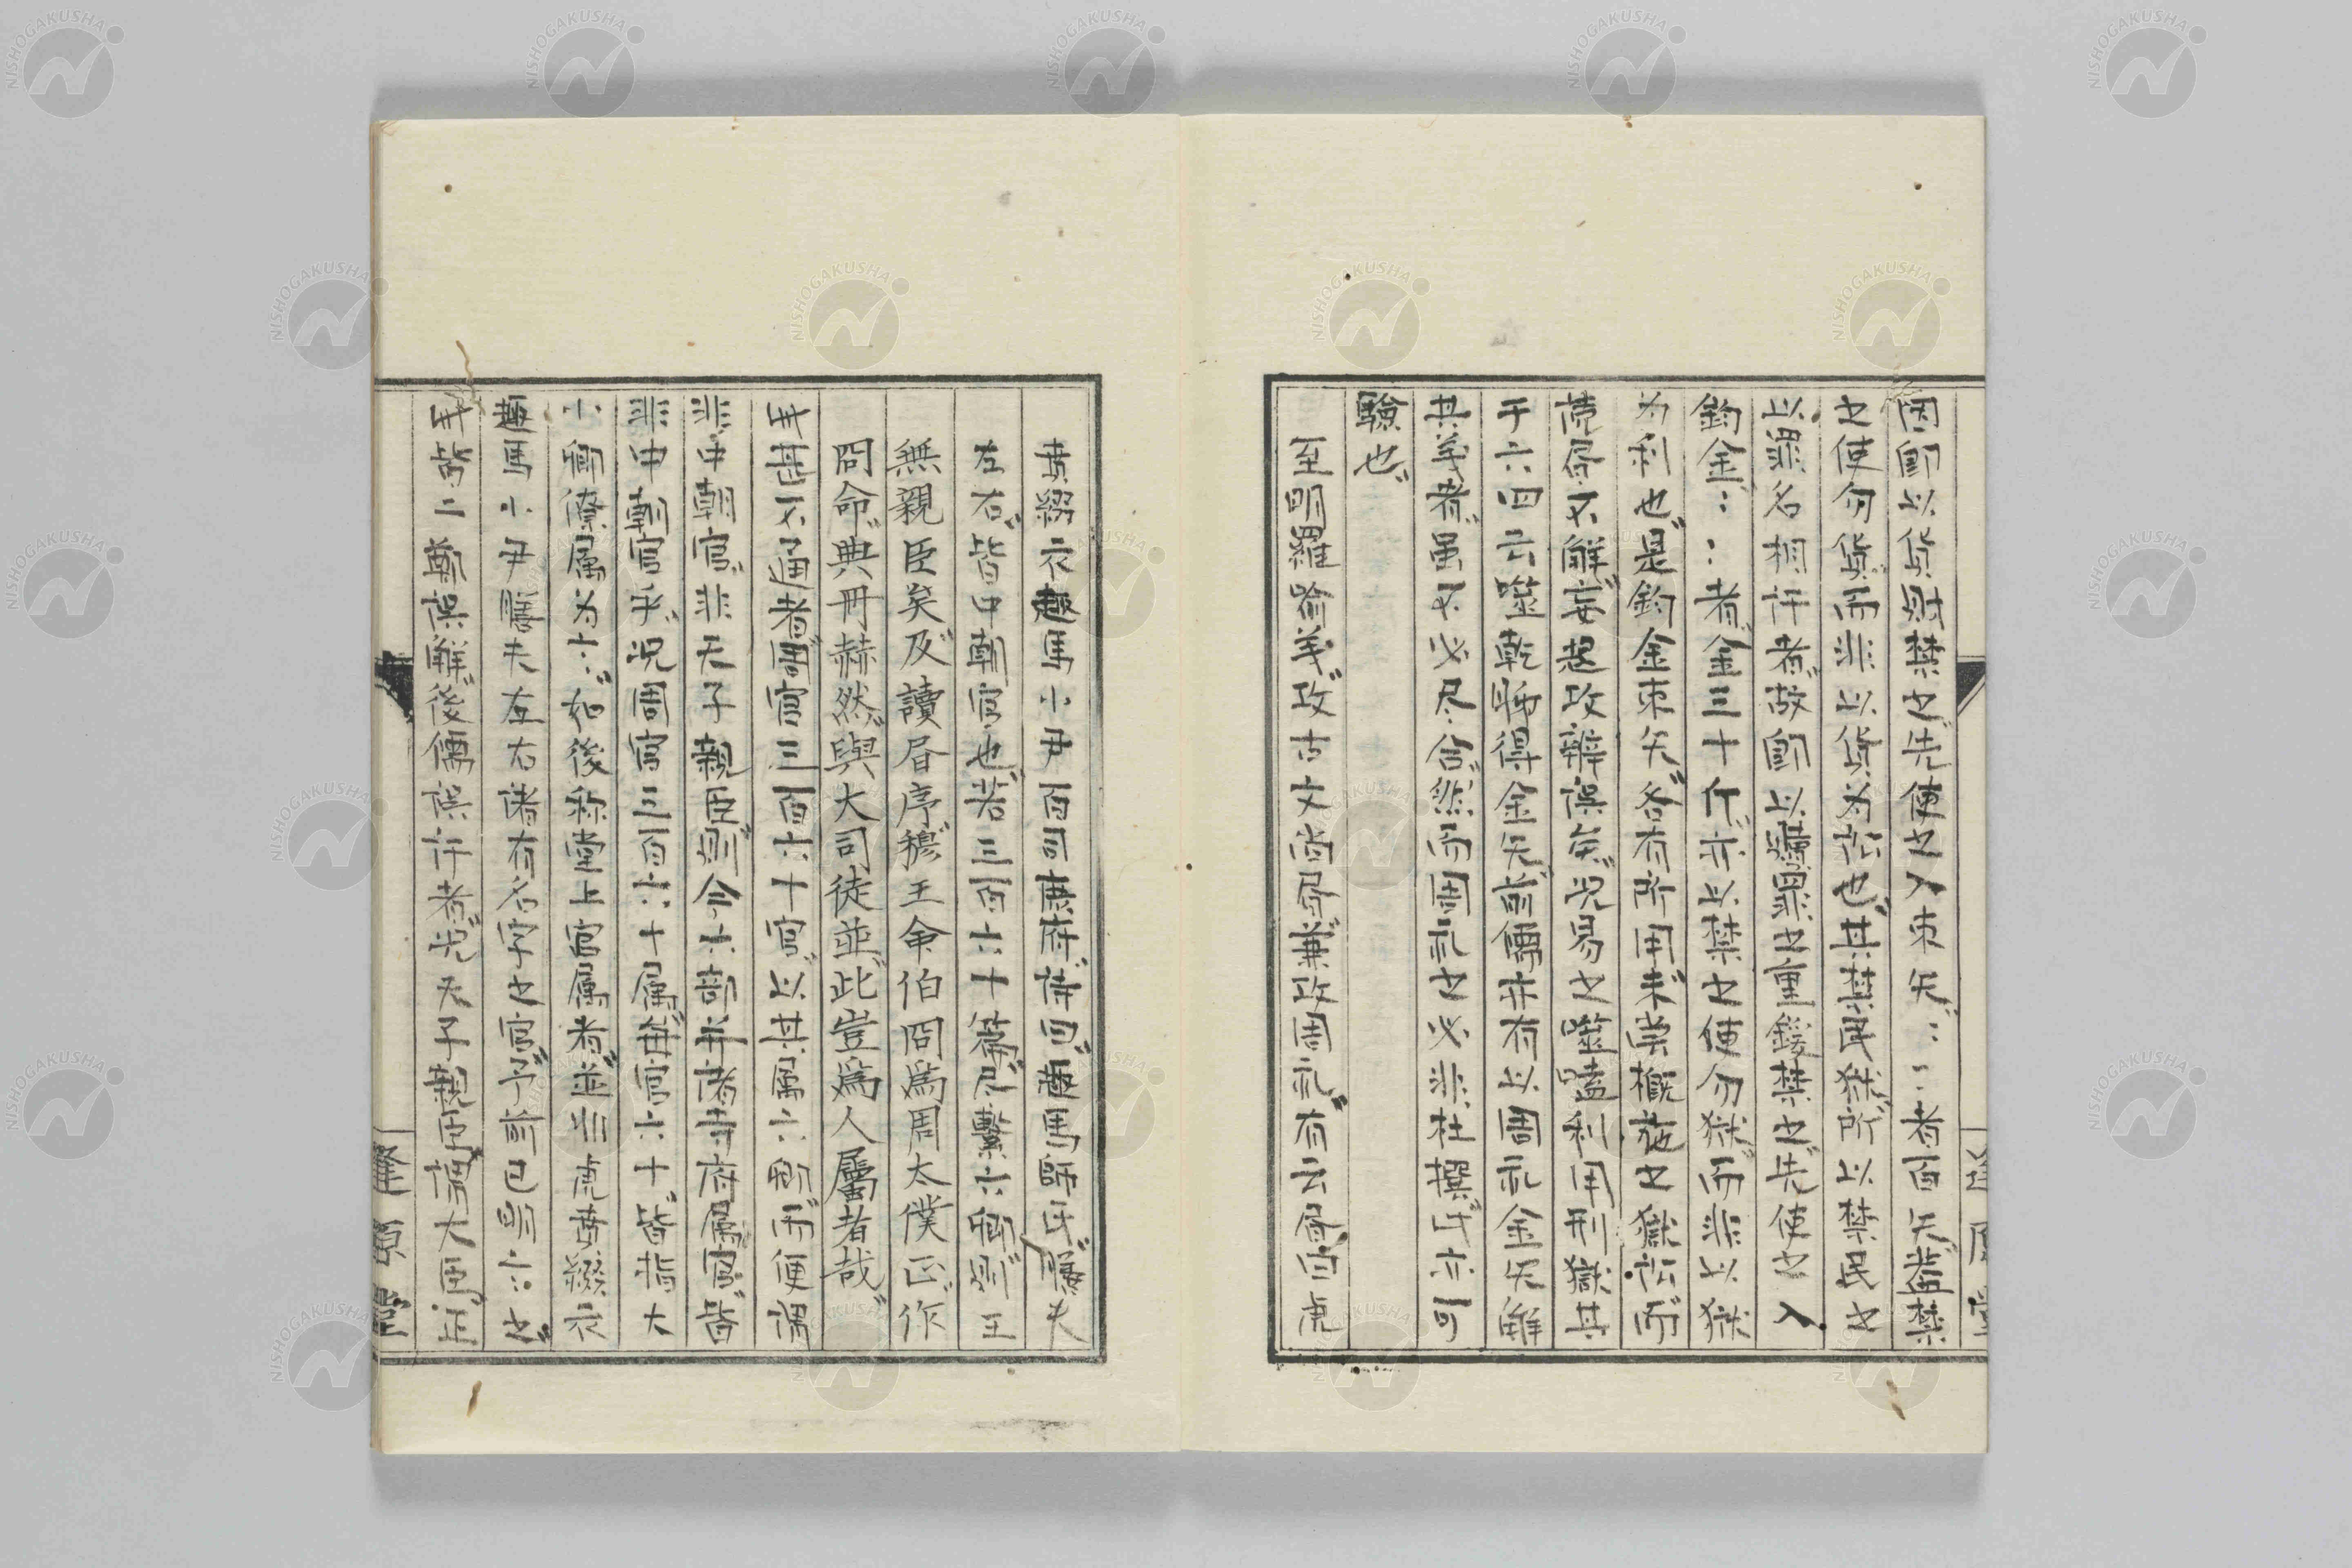 因卽以貨財禁之先使之入束矢〻〻者百矢蓋禁
之使勿貨而非以貨为訟也其禁民獄所以禁民之
以罪名相訐者故卽以贖罪之重鍰禁之先使之入
鈞金〻〻者金三十斤亦以禁之使勿獄而非以獄
为利也是鈞金束矢各有所用末嘗概施之獄訟而
荒唇不解妄起攷辨誤矣況易之噬嗑利用刑獄其
于六四云噬乾胏得金矢前儒亦有以周礼金矢解
其義者虽不必尽合然而周礼之必非杜撰此亦可
驗也
至明羅喻義攷古文尚书兼攷周礼有云书自虎
賁綴衣趣馬小尹百司庶府詩曰趣馬師氏膳夫
左右皆中朝官也若三百六十篇尽繫六卿則王
無親臣矣及讀书序穆王命伯冏爲周太僕正作
冏命典冊赫然與大司徒並此豈爲人屬者哉
此甚不通者周官三百六十官以其屬六卿而便謂
非中朝官非天子親臣則今六部并诸寺府属官皆
非中朝官乎況周官三百六十属每官六十皆指大
小卿僚属为六〻如後称堂上官属者並非虎賁綴衣
趣馬小尹膳夫左右诸有名字之官予前已明言之
此皆二鄭誤解後儒誤訐者況天子親臣謂大臣正
逢原堂
NISHOGAKUSHA